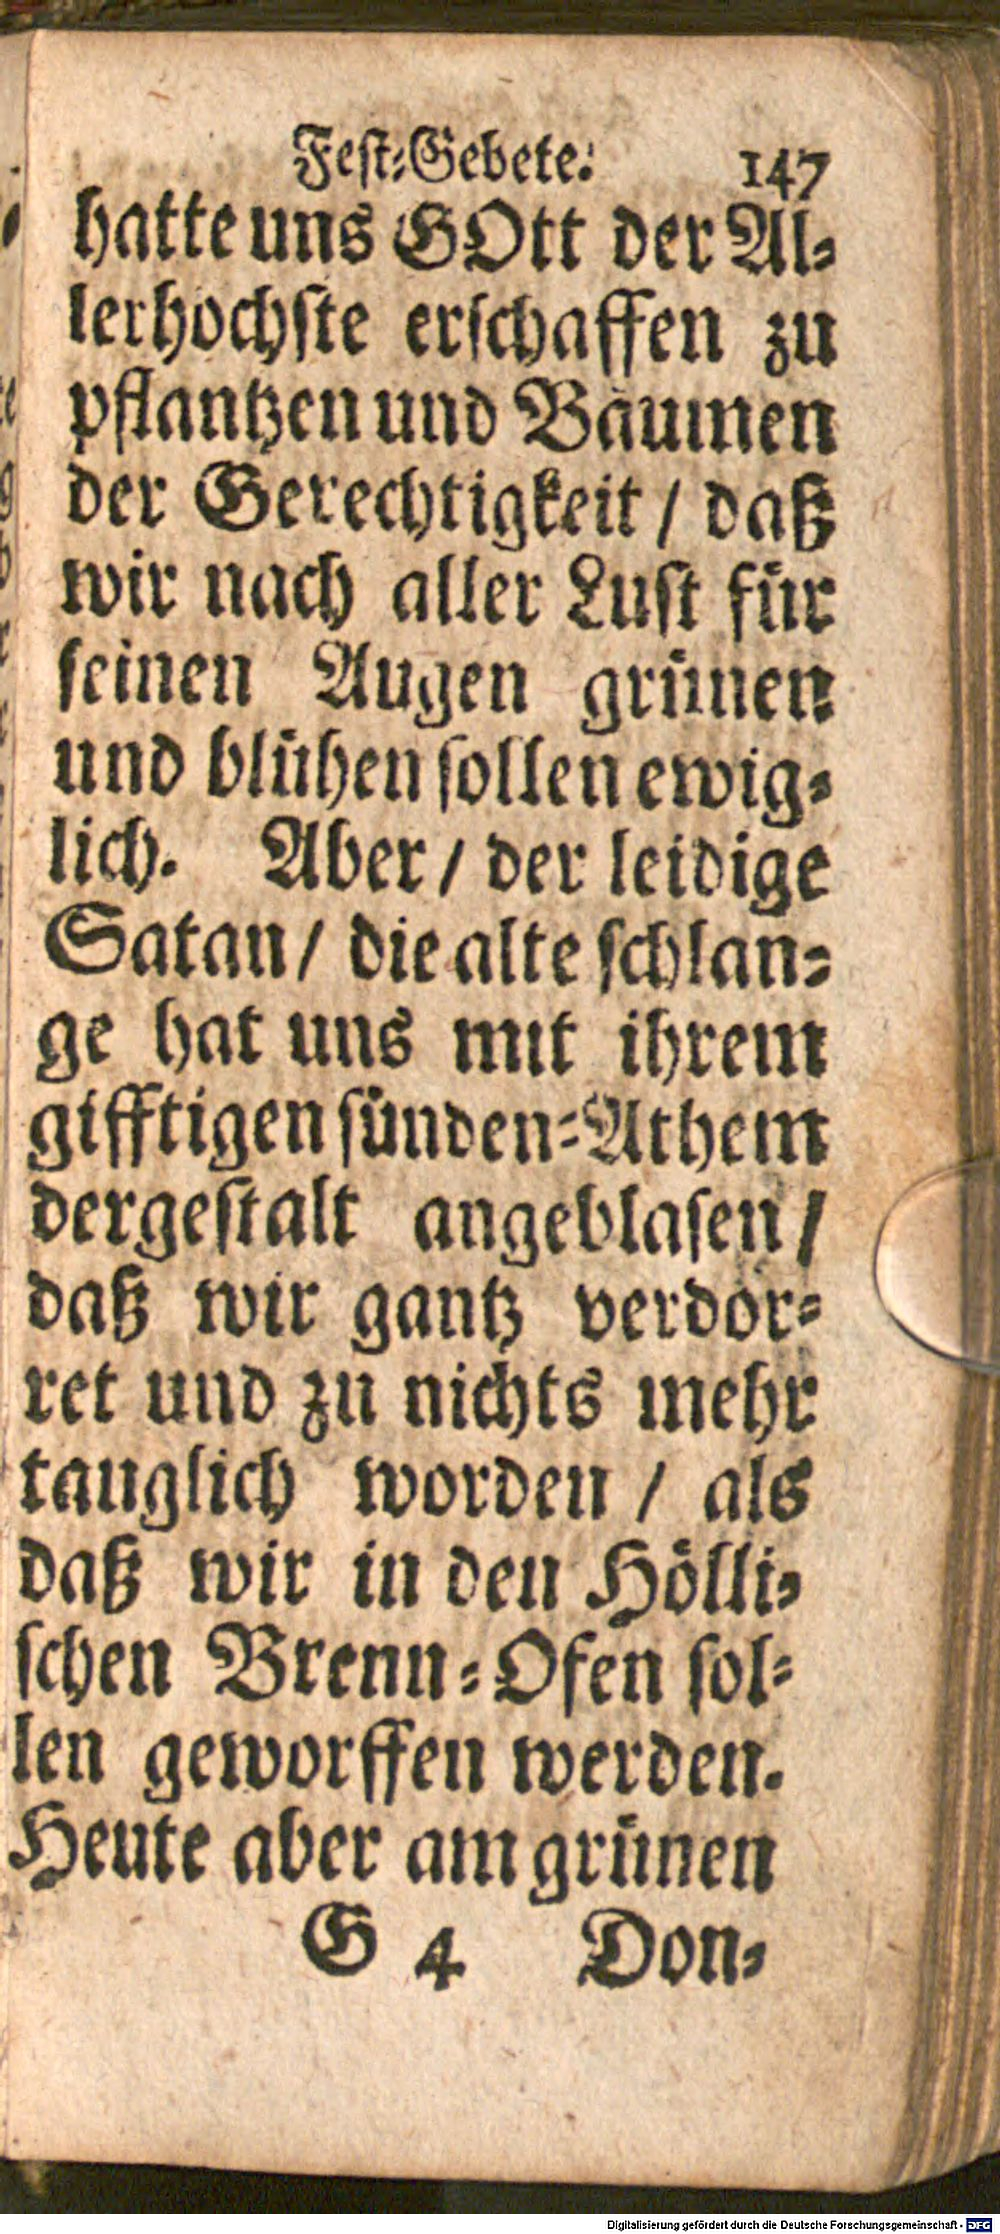 Fest-Gebete. 147
hatte uns GOtt der Al-
lerhöchste erschaffen zu
pflantzen und Bäumen
der Gerechtigkeit / daß
wir nach aller Lust für
seinen Augen grünen
und blühen sollen ewig-
lich. Aber / der leidige
Satan / die alte schlan-
ge hat uns mit ihrem
gifftigen sünden-Athem
dergestalt angeblasen /
daß wir gantz verdor-
ret und zu nichts mehr
tauglich worden / als
daß wir in den Hölli-
schen Brenn-Ofen sol-
len geworffen werden.
Heute aber am grünen
G 4 Don-
Digitalisierung gefördert durch die Deutsche Forschungsgemeinschaft - DFG